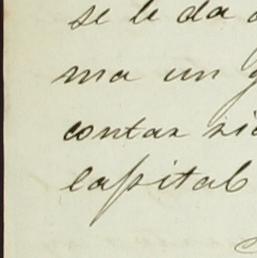 se le da
ma un
contar
capital